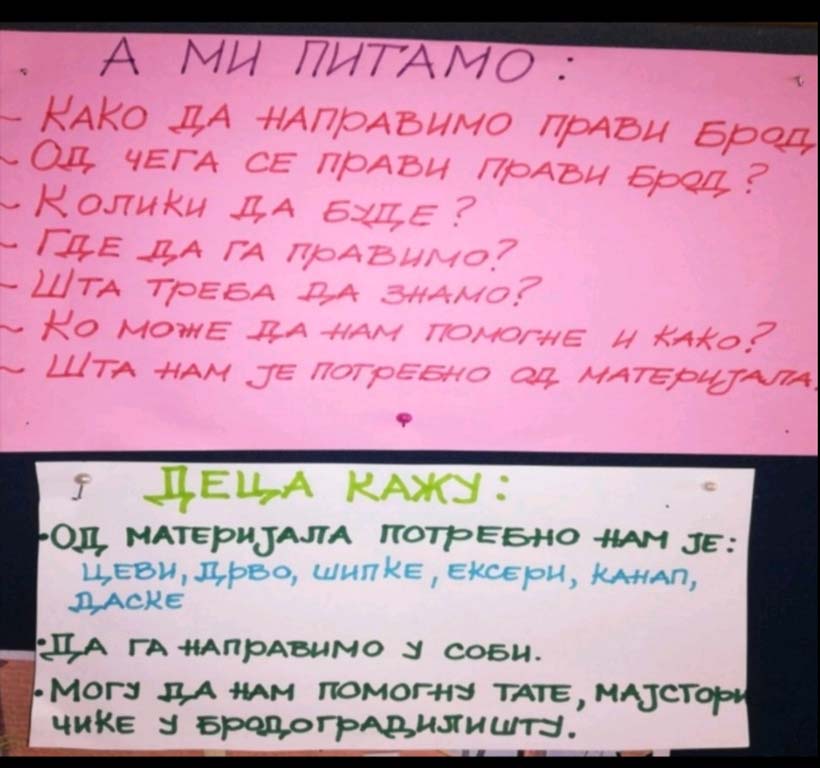 А МИ ПИТАМО:
~ КАКО ДА НАПРАВИМО ПРАВИ БРОД
~ ОД ЧЕГА СЕ ПРАВИ ПРАВИ БРОД?
~ КОЛИКИ ДА БУДЕ?
~ ГДЕ ДА ГА ПРАВИМО?
~ ШТА ТРЕБА ДА ЗНАМО?
~ КО МОЖЕ ДА НАМ ПОМОГНЕ И КАКО?
~ ШТА НАМ ЈЕ ПОТРЕБНО ОД МАТЕРИЈАЛА.
ДЕЦА КАЖУ:
• ОД МАТЕРИЈАЛА ПОТРЕБНО НАМ ЈЕ:
ЦЕВИ, ДРВО, ШИПКЕ, ЕКСЕРИ, КАНАП,
ДАСКЕ
• ДА ГА НАПРАВИМО У СОБИ.
• МОГУ ДА НАМ ПОМОГНУ ТАТЕ, МАЈСТОРИ
ЧИКЕ У БРОДОГРАДИЛИШТУ.